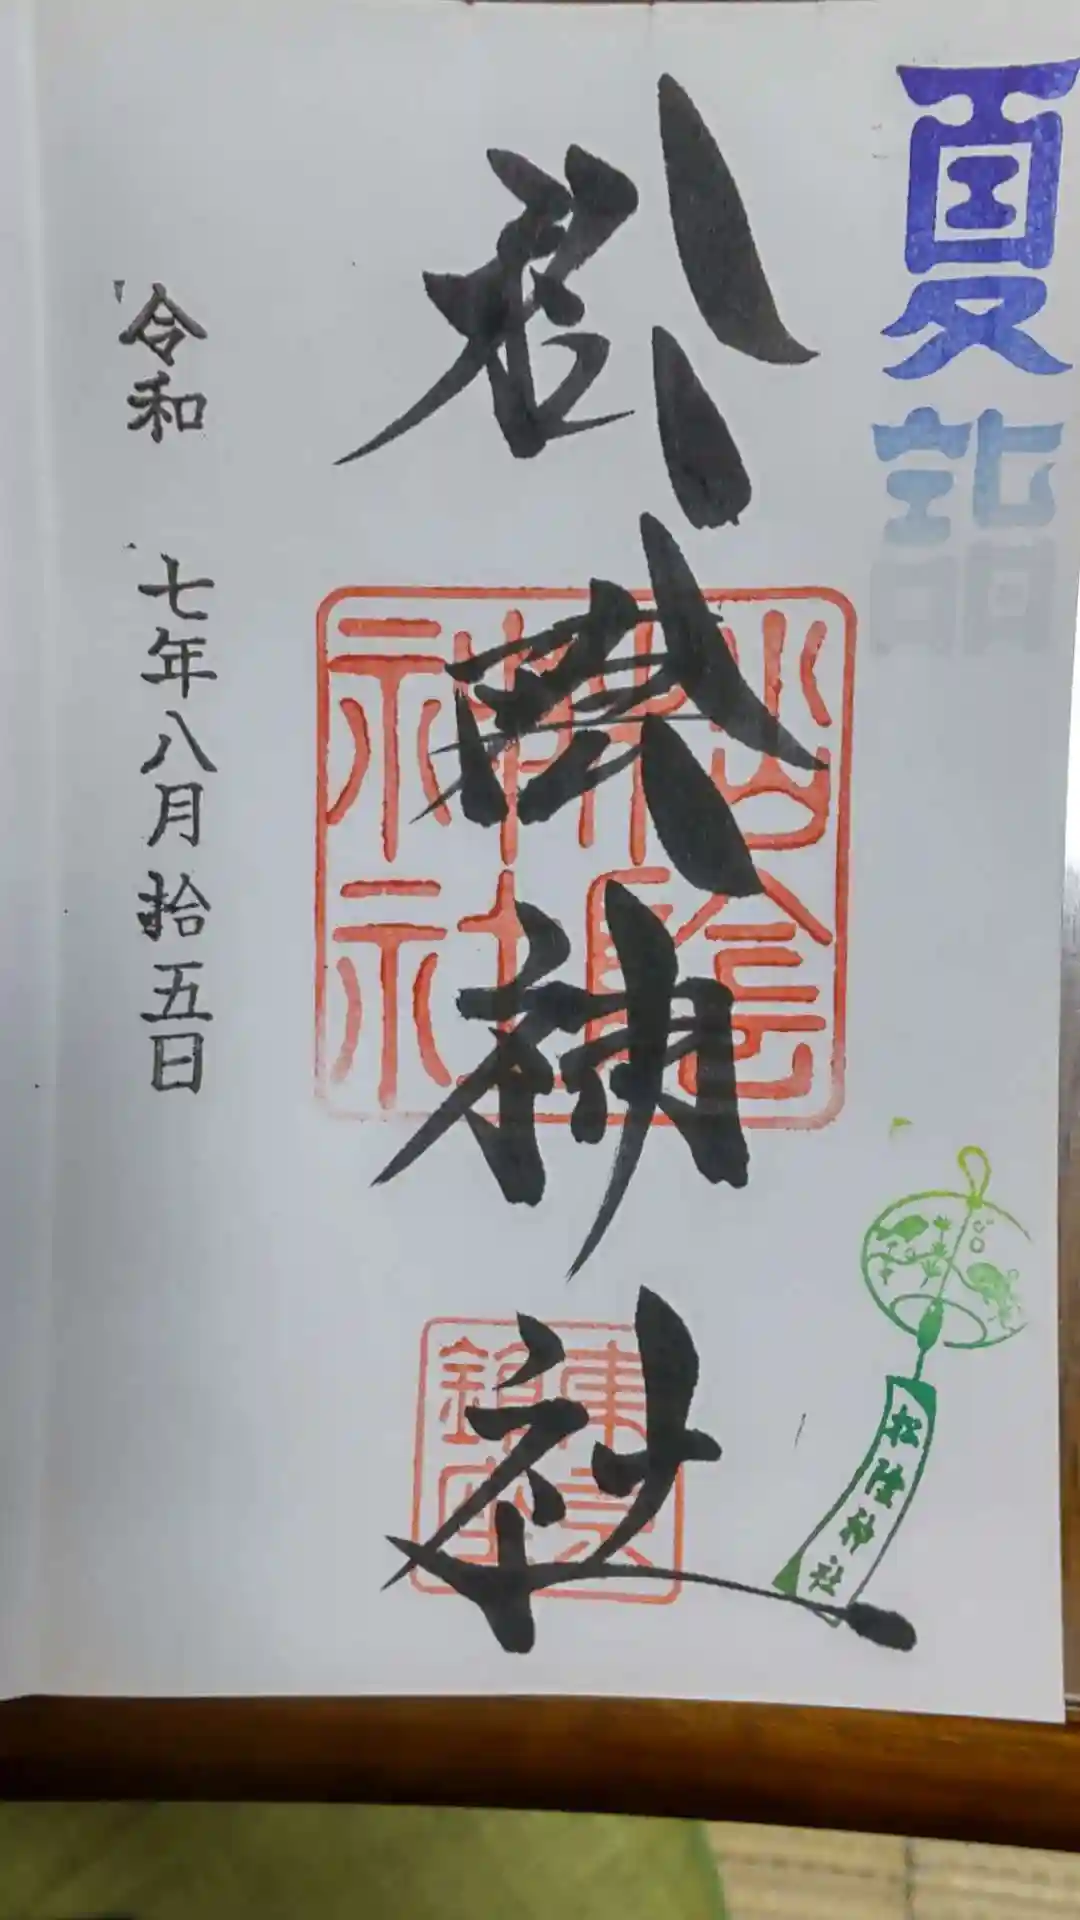 夏詣
松陰神社
松陰神社
松陰神社
東京
令和 七年八月拾五日